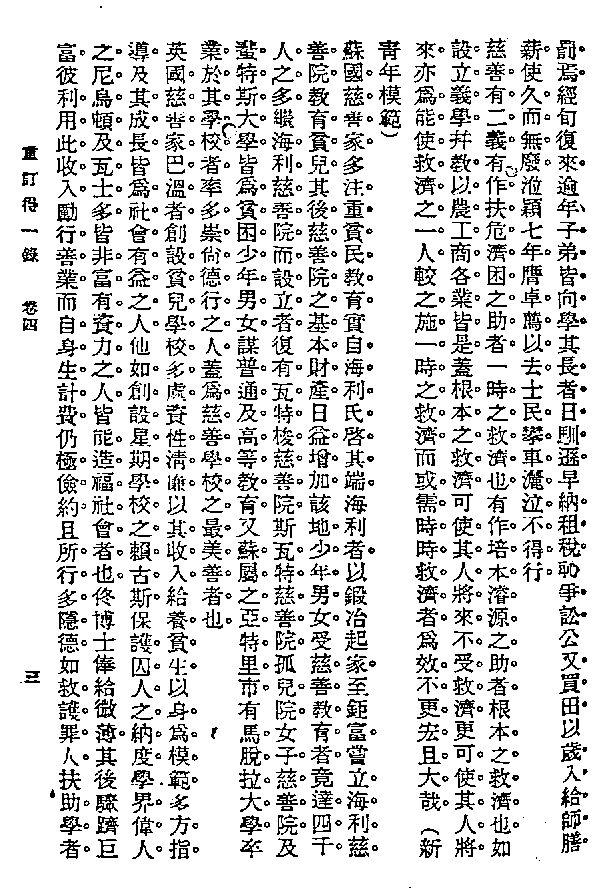 罰焉經旬復來逾年子弟皆向學其長者日馴遜早納租稅恥爭訟公又買田以歲入給師膳
薪使久而無廢涖潁七年膺卓薦以去士民攀車灑泣不得行
慈善有二義有作扶危濟困之助者一時之救濟也有作培本濬源之助者根本之救濟也如
設立義學幷教以農工商各業皆是蓋根本之救濟可使其人將來不受救濟更可使其人將
來亦爲能使救濟之一人較之施一時之救濟而或需時時救濟者爲效不更宏且大哉（新
青年模範）
蘇國慈善家多注重貧民教育實自海利氏啓其端海利者以鍛冶起家至鉅富嘗立海利慈
善院教育貧兒其後慈善院之基本財產日益增加該地少年男女受慈善教育者竟達四千
人之多繼海利慈善院而設立者復有瓦特梭慈善院斯瓦特慈善院孤兒院女子慈善院及
特斯大學皆爲貧困少年男女謀普通及高等教育又蘇屬之亞特里市有馬脫拉大學卒
業於其學校者率多崇尙德行之人蓋爲慈善學校之最美善者也
英國慈善家巴溫者創設貧兒學校多處資性淸廉以其收入給養貧生以身爲模範多方指
導及其成長皆爲社會有益之人他如創設星期學校之賴古斯保護囚人之納度學界偉人
之尼鳥頓及瓦士多皆非富有資力之人皆能造福社會者也佟博士俸給微薄其後驟躋巨
富彼利用此收入勵行善業而自身生計費仍極儉約且所行多隱德如救護罪人扶助學者
重訂得一錄 卷四 三